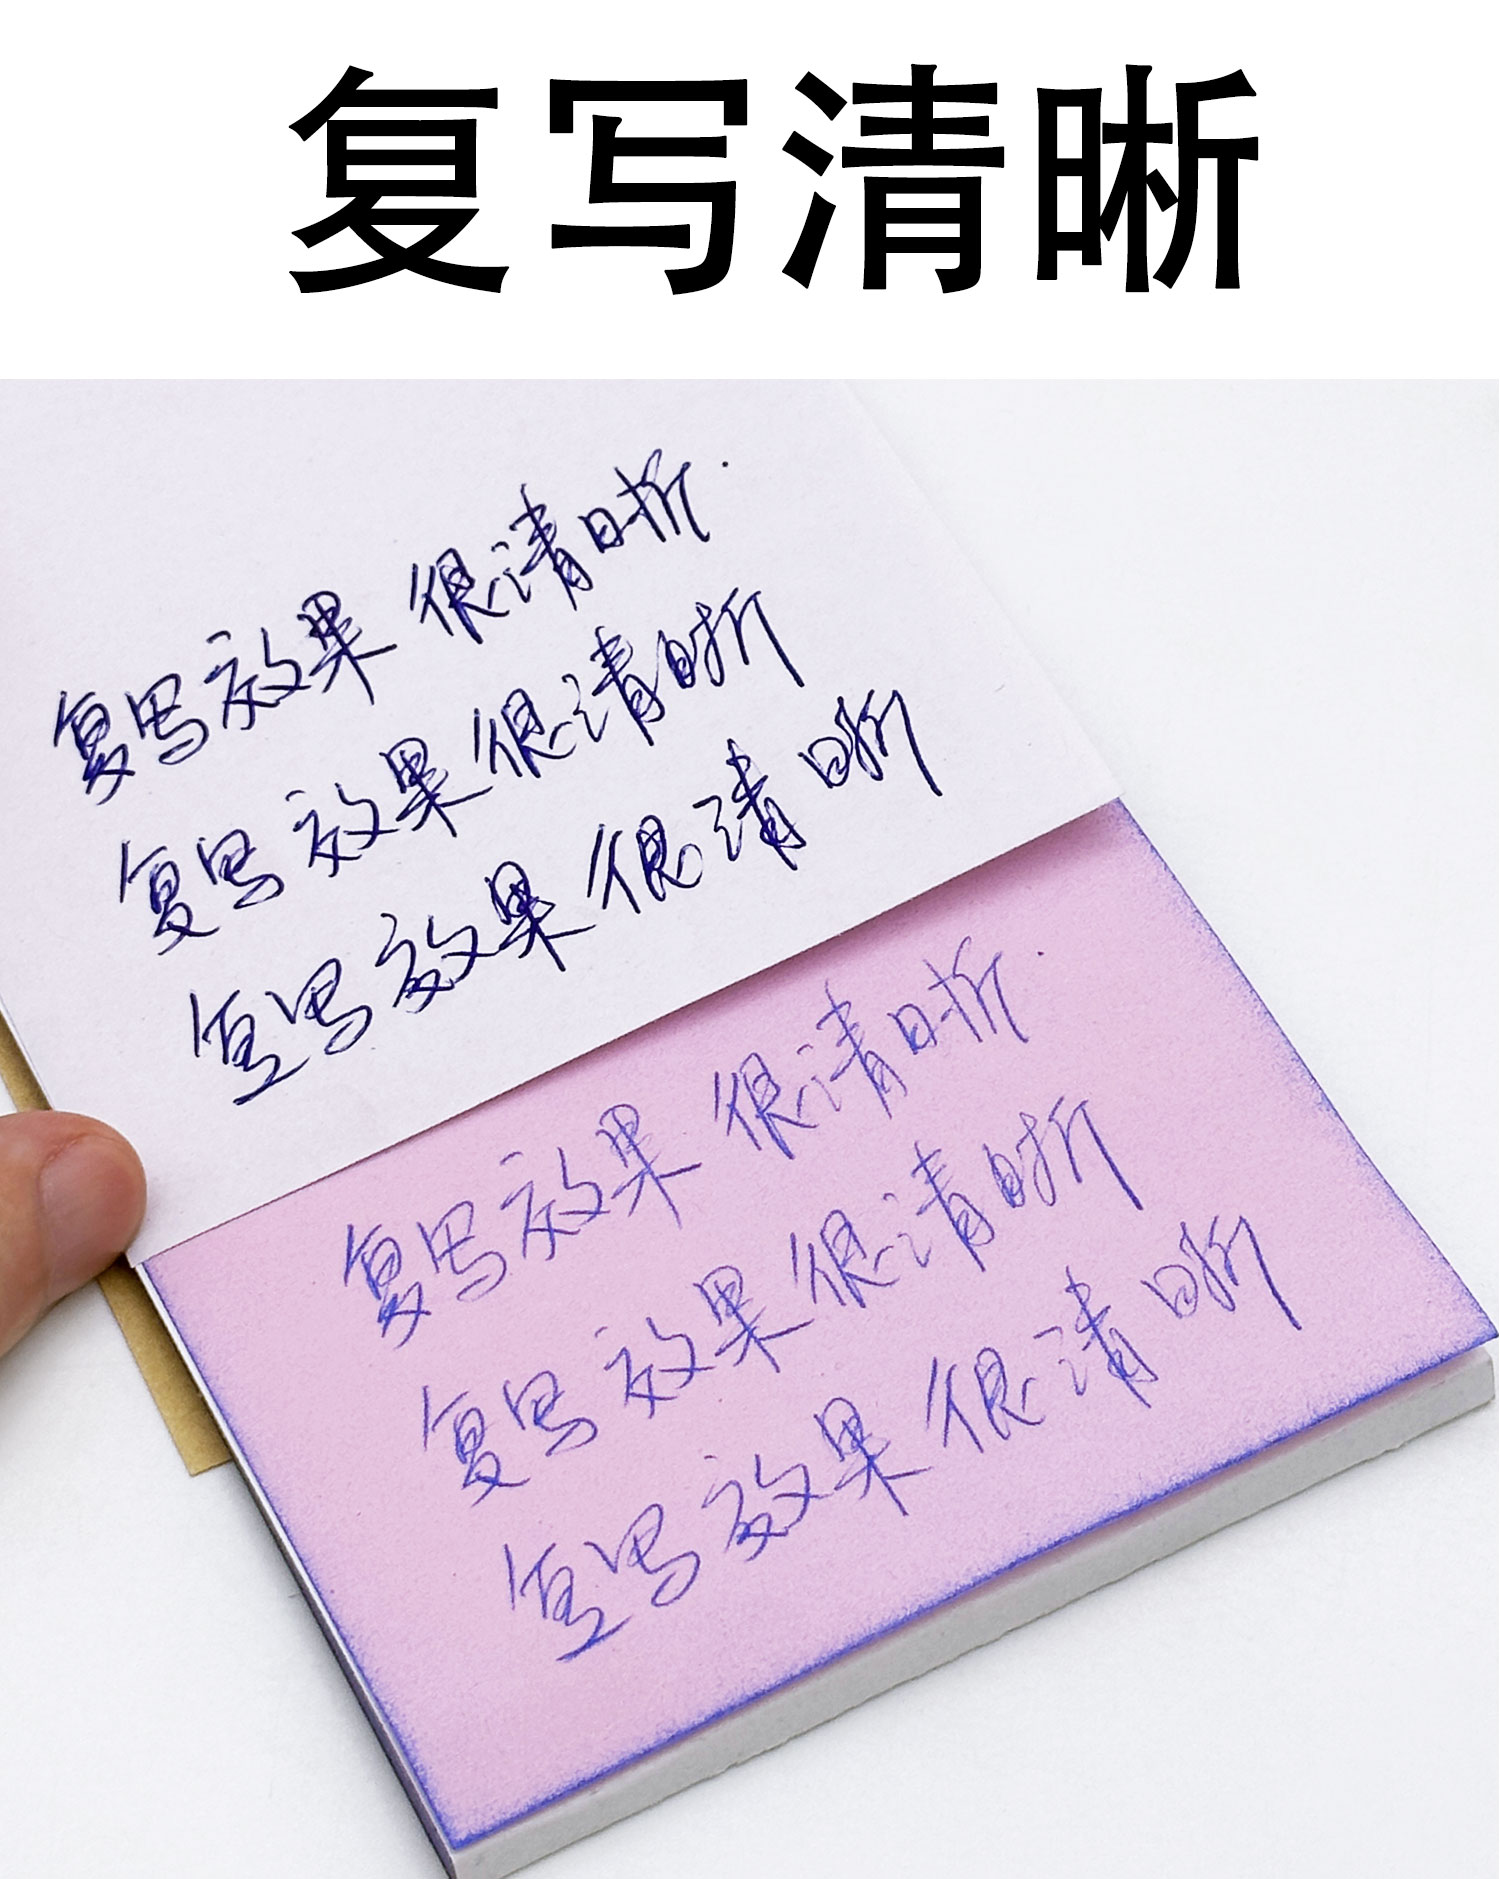 复写清晰
复写效果很清晰.
复写效果很清晰
复写效果很清晰
复写效果很清晰.
复写效果很清晰
复写效果很清晰